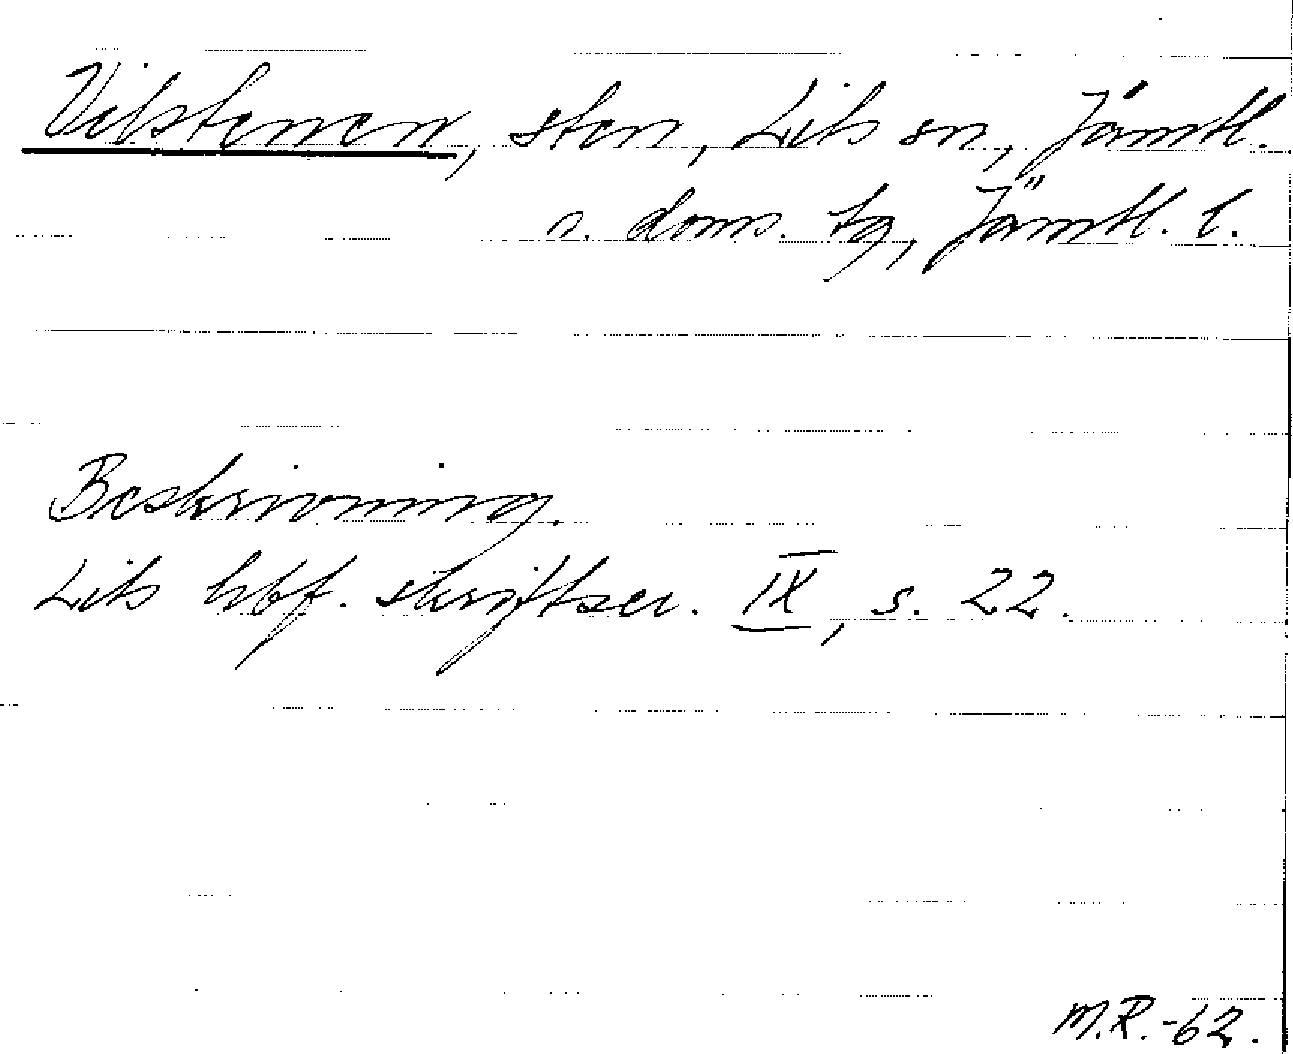 Vilstenen, sten, Lits sn, Jämtl.
n. doms. tg, Jämtl. l.
Beskrivning.
Lits hbf. skriftser. IX, s. 22.
M.R.-62.